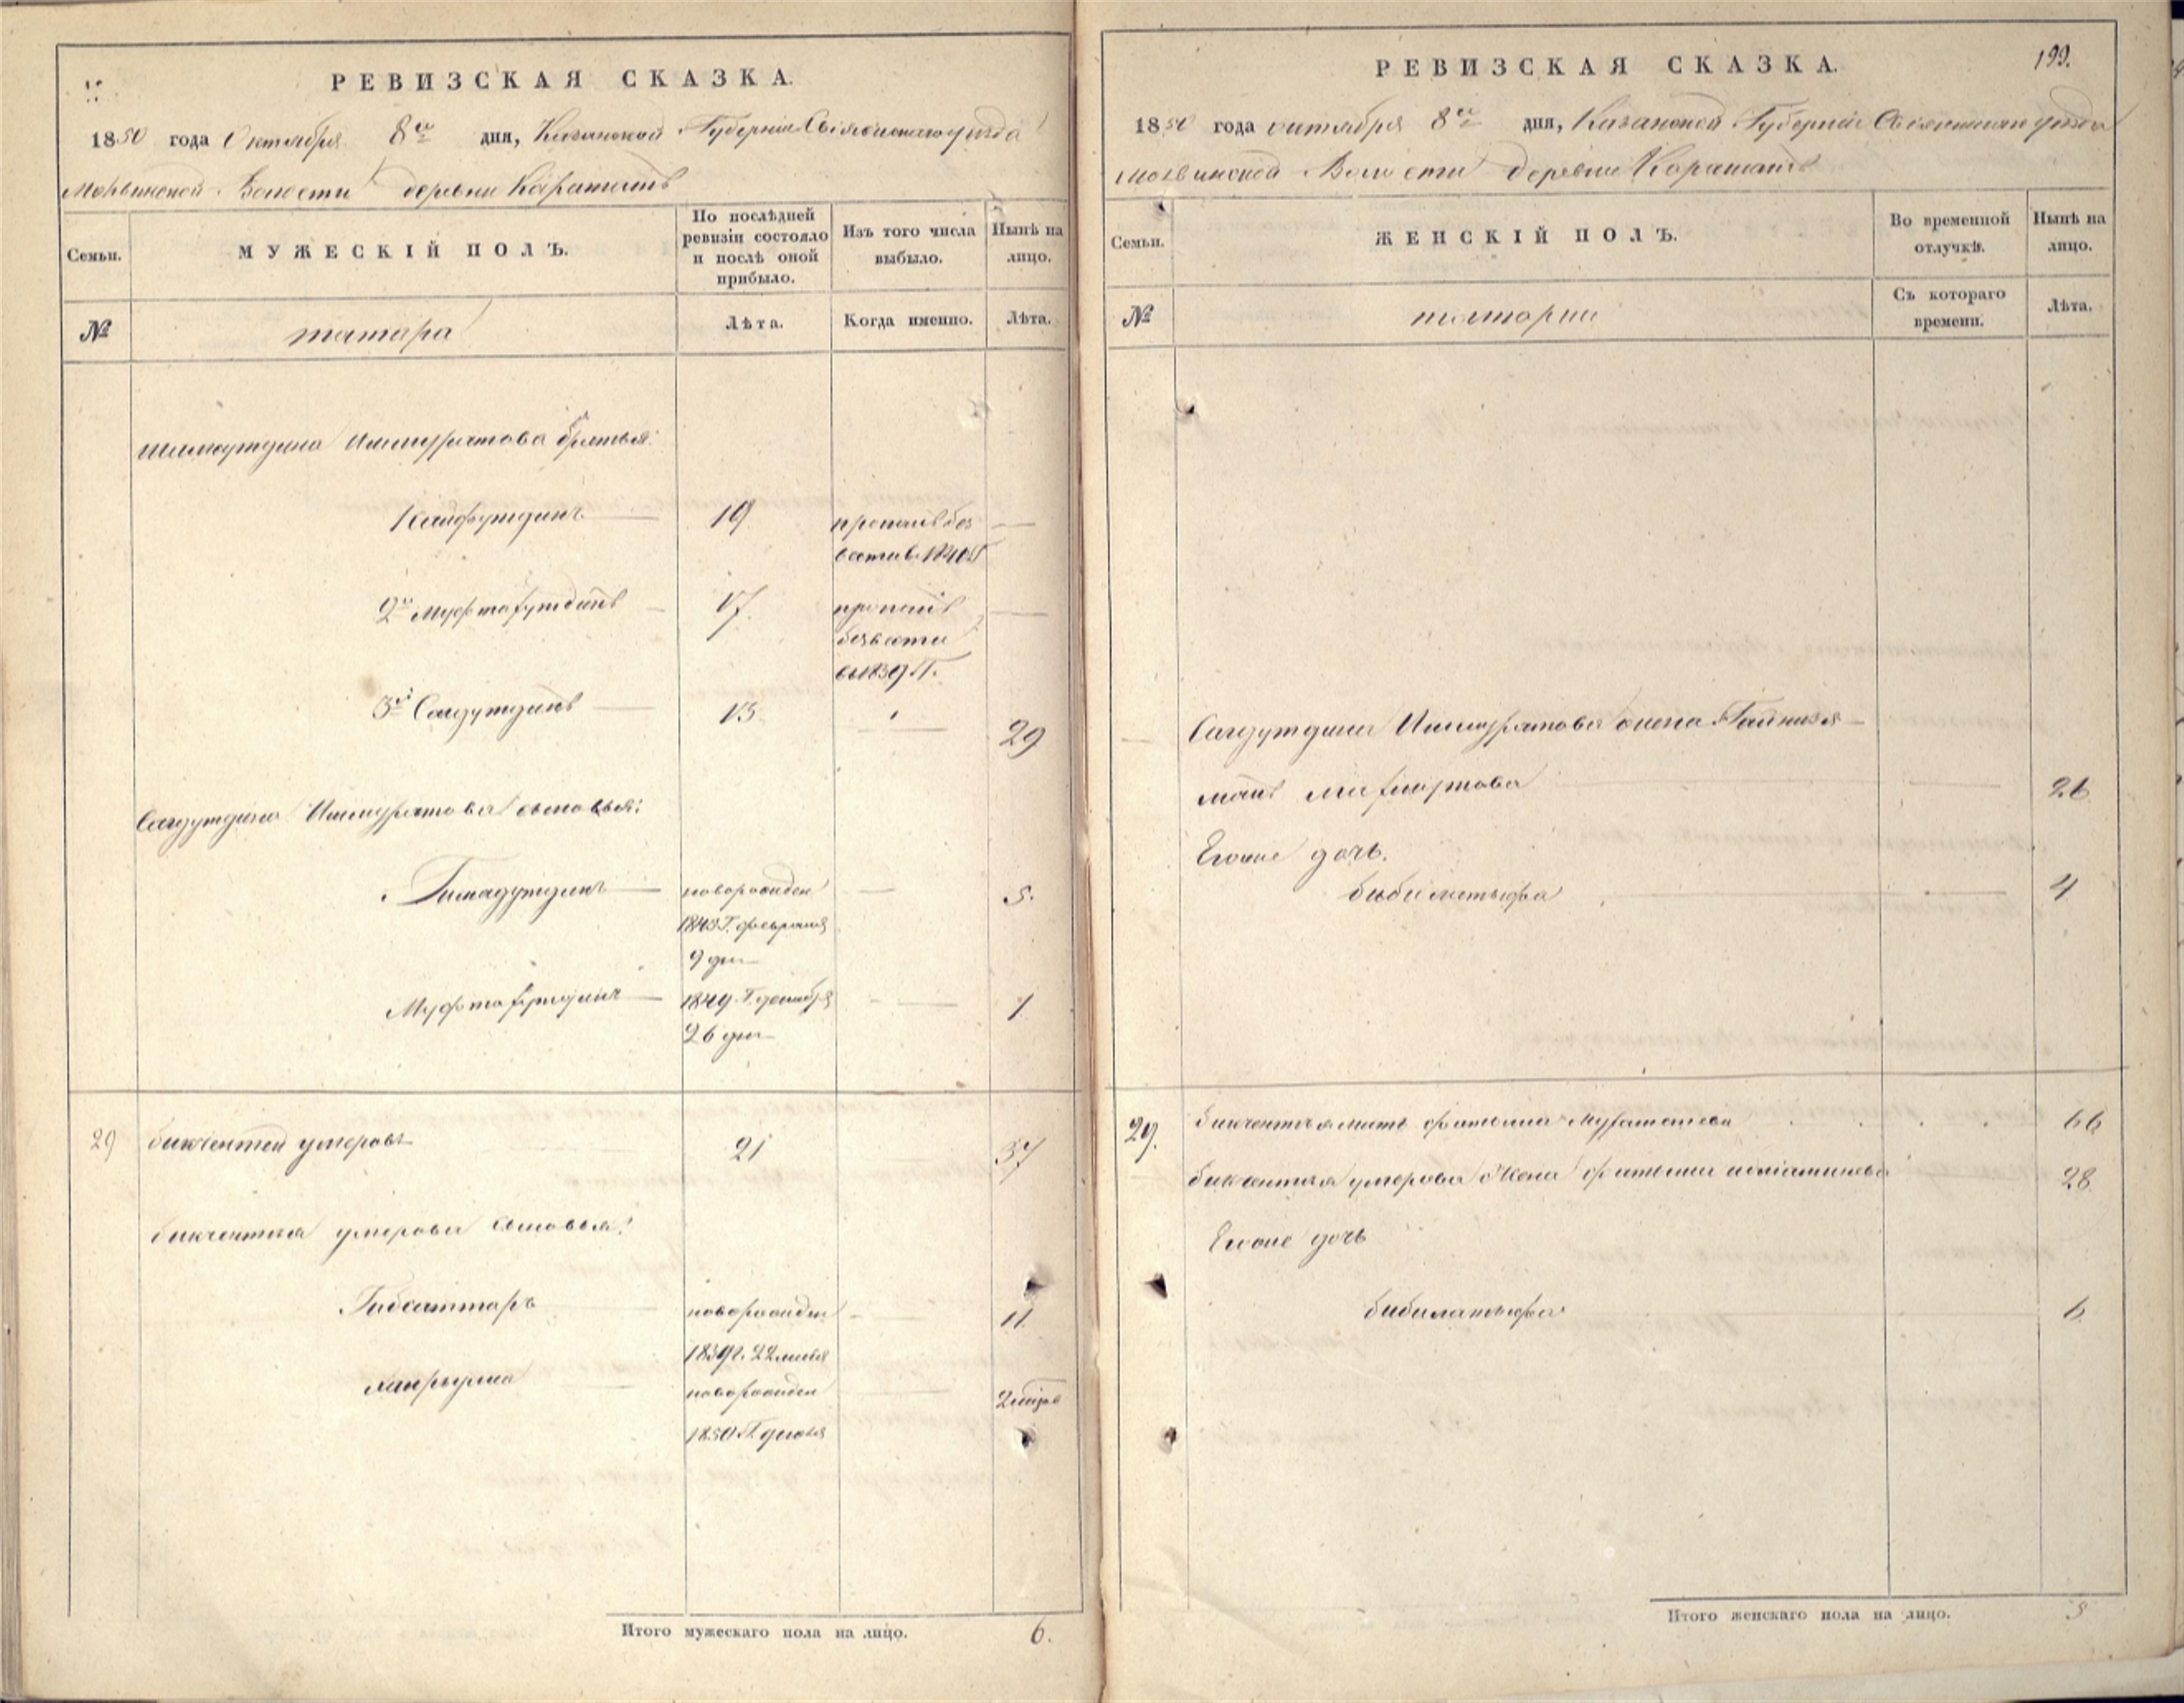 РЕВИЗСКАЯ СКАЗКА.
1850 года Октября 8го дня, Казанской Губернии Свіяжскаго уѣзда
Волости деревни Каратать
Семьи.
МУЖЕСКІЙ ПОЛЪ.
По послѣдней ревизіи состояло и послѣ оной прибыло.
Изъ того числа выбыло.
Нынѣ на лицо.
№
татара
Лѣта.
Когда именно.
Лѣта.
Ишмуратова братья:
19 пропалъ без —
вести в 1840 Г
2й Муфтахутдинъ — 17. пропалъ —
безвести
в 1839 Г.
3й Сагдутдинъ — 13 — 29
Сагдутдина Ишмуратова сыновья:
Гимадутдинъ — новорожден — 5.
1845 Г. февраля
9 дня
Муфтахутдинъ — 1849 Г. декабря — 1
26 дня
29 бикчентей умеровъ 21 37
бикчентея умерова сыновья:
Габсаттаръ новорожден — 11
1839 г. 22 июня
новорожден — 2
1850 Г.
Итого мужескаго пола на лицо. 6.
РЕВИЗСКАЯ СКАЗКА. 199.
1850 года октября 8го дня, Казанской Губернии Свіяжскаго уѣзда
Волости деревни Каратать
Семьи.
ЖЕНСКІЙ ПОЛЪ.
Во временной отлучкѣ.
Нынѣ на лицо.
№
татарки
Съ котораго времени.
Лѣта.
Сагдутдина Ишмуратова жена
26
Егоже дочь.
бибилатыфа — 4
29. бикчентея мать фатыма 66
бикчентея умерова жена фатыма 28
Егоже дочь
бибилатыфа 6
Итого женскаго пола на лицо. 5